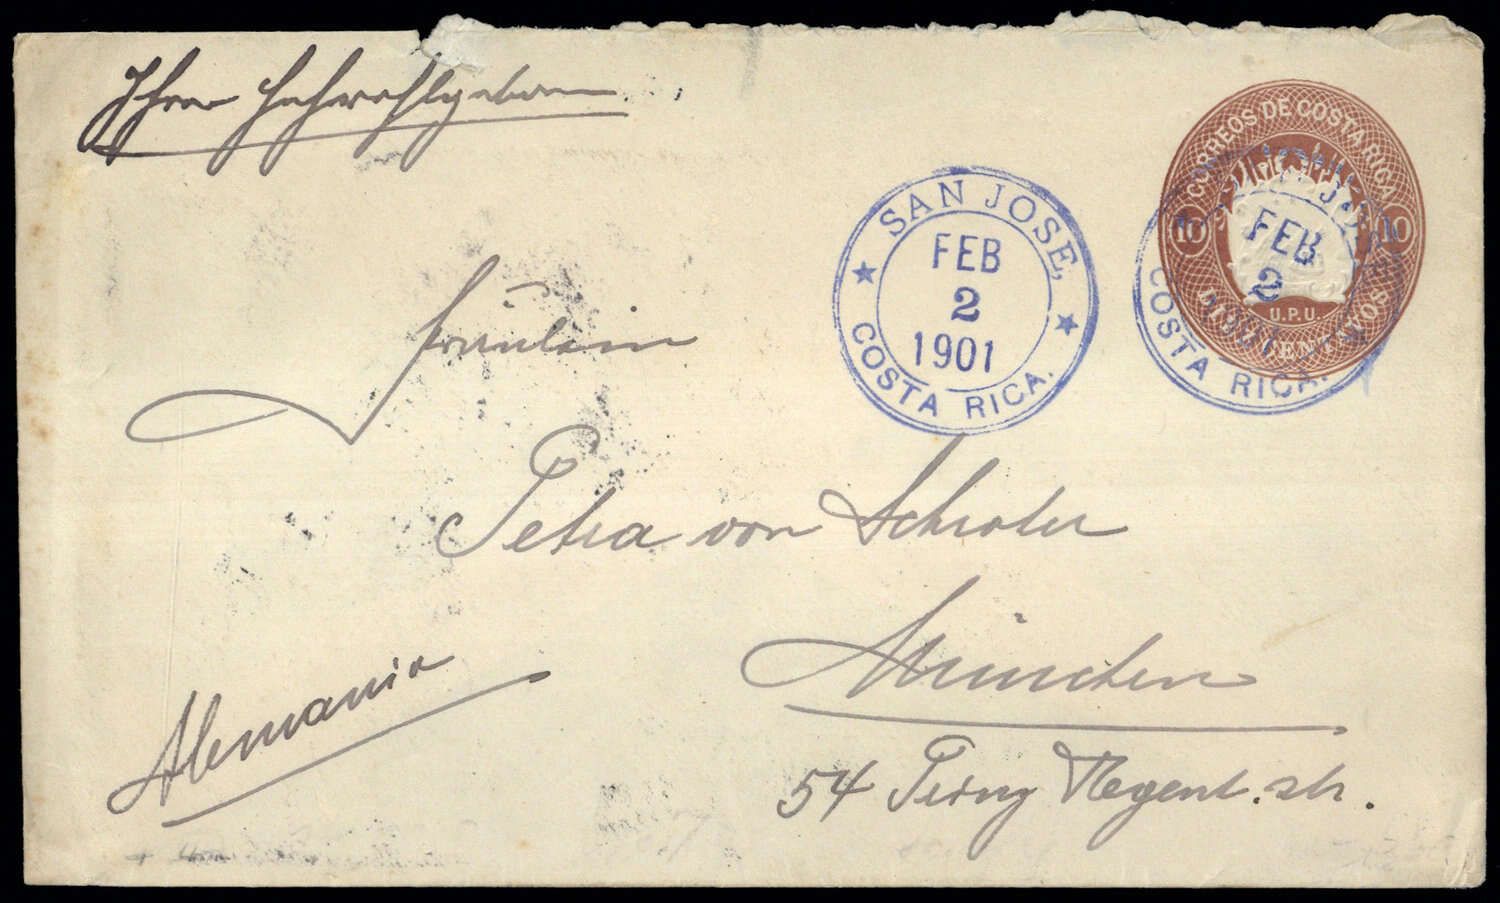 Ihrer Hochwohlgeboren
CORREOS DE COSTA RICA
10 10
U.P.U.
SAN JOSE,
FEB
2
1901
COSTA RICA.
FEB
2
COSTA RICA.
Fräulein
Petra von Schroter
München
54 Prinz Regent. str.
Alemania